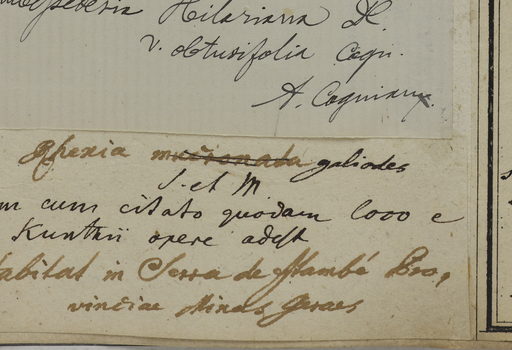 Hilariana DC.
v. obtusifolia Cogn.
A. Cogniaux
Rhexia mucronata galiodes
S. et M
cum citato quodam loco e
Kunthii opere adest
habitat in Serra de Itambé Pro,
vinciae Minas Geraes